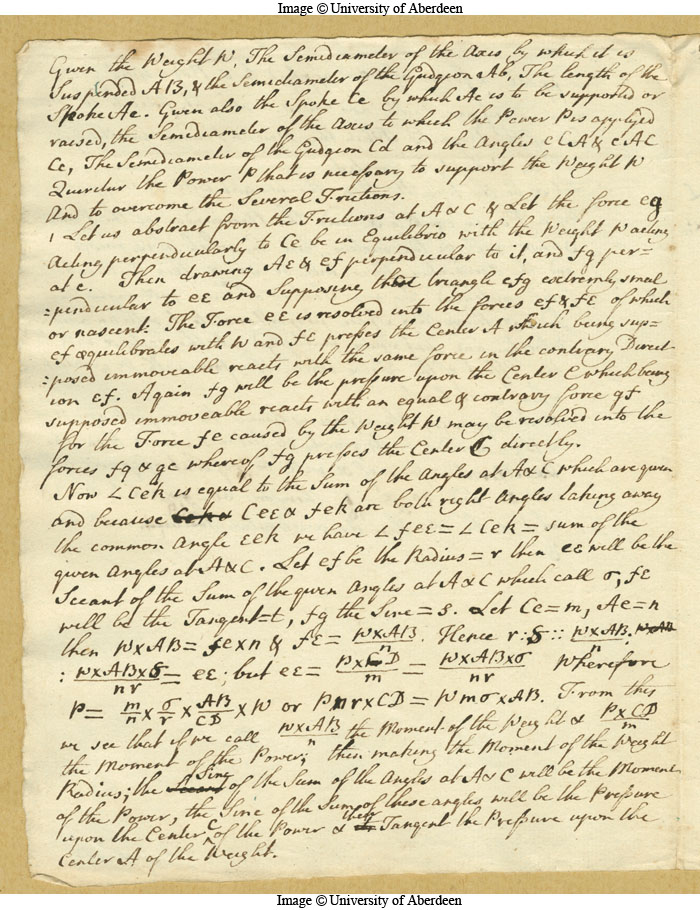 Image © University of Aberdeen
Given the Weight W, The Semediameter of the Axis by which it is
Suspended AB, & the Semediameter of the Gudgeon Ab, The length of the
Spoke Ae. Given also the Spoke Ce by which Ae is to be supported or
raised, the Semediameter of the Axis to which the Power P is applyed
Cc, The Semediameter of the Gudgeon Cd and the Angles eCA & eAC
Queritur the Power P that is necessary to support the Weight W
And to overcome the Several Frictions.
1 Let us abstract from the Frictions at A & C & Let the force eg
Acting perpendicularly to Ce be in Equilibrio with the Weight W acting
at e. Then drawing Aε & ef perpendicular to it, and fg per=
=pendicular to eε and Supposing the triangle efg extremly small
or nascent: The Force eε is resolved into the forces ef & fε of which
ef æquilibrates with W and fε presses the Center A which being sup=
=posed immoveable reacts with the same force in the contrary Direct-
ion εf. Again fg will be the pressure upon the Center C which being
supposed immoveable reacts with an equal & contrary force gf
for the Force fe caused by the Weight W may be resolved into the
forces fg & ge whereof fg presses the Center C directly.
Now ∠ Cek is equal to the Sum of the Angles at A & C which are given
and because Ceε & fek are both right Angles taking away
the common Angle εek we have ∠ feε = ∠ Cek = sum of the
given Angles at A & C. Let ef be the Radius = r then eε will be the
Secant of the Sum of the given Angles at A & C which call σ, fε
will be the Tangent = t, fg the Sine = s. Let Ce = m, Ae = n
then W x AB = fe x n & fε = W x AB / n. Hence r : S :: W x AB / n
: W x AB x S / nr = eε; but eε = P x CD / m = W x AB x σ / nr Wherefore
P = m/n x σ/r x AB/CD x W or P n r x CD = W m σ x AB. From this
we see that if we call W x AB / n the Moment of the Weight & P x CD / m
the Moment of the Power; then making the Moment of the Weight
Radius; the Sine of the Sum of the Angles at A & C will be the Moment
of the Power, the Sine of the Sum of these angles will be the Pressure
upon the Center C of the Power & their Tangent the Pressure upon the
Center A of the Weight.
Image © University of Aberdeen